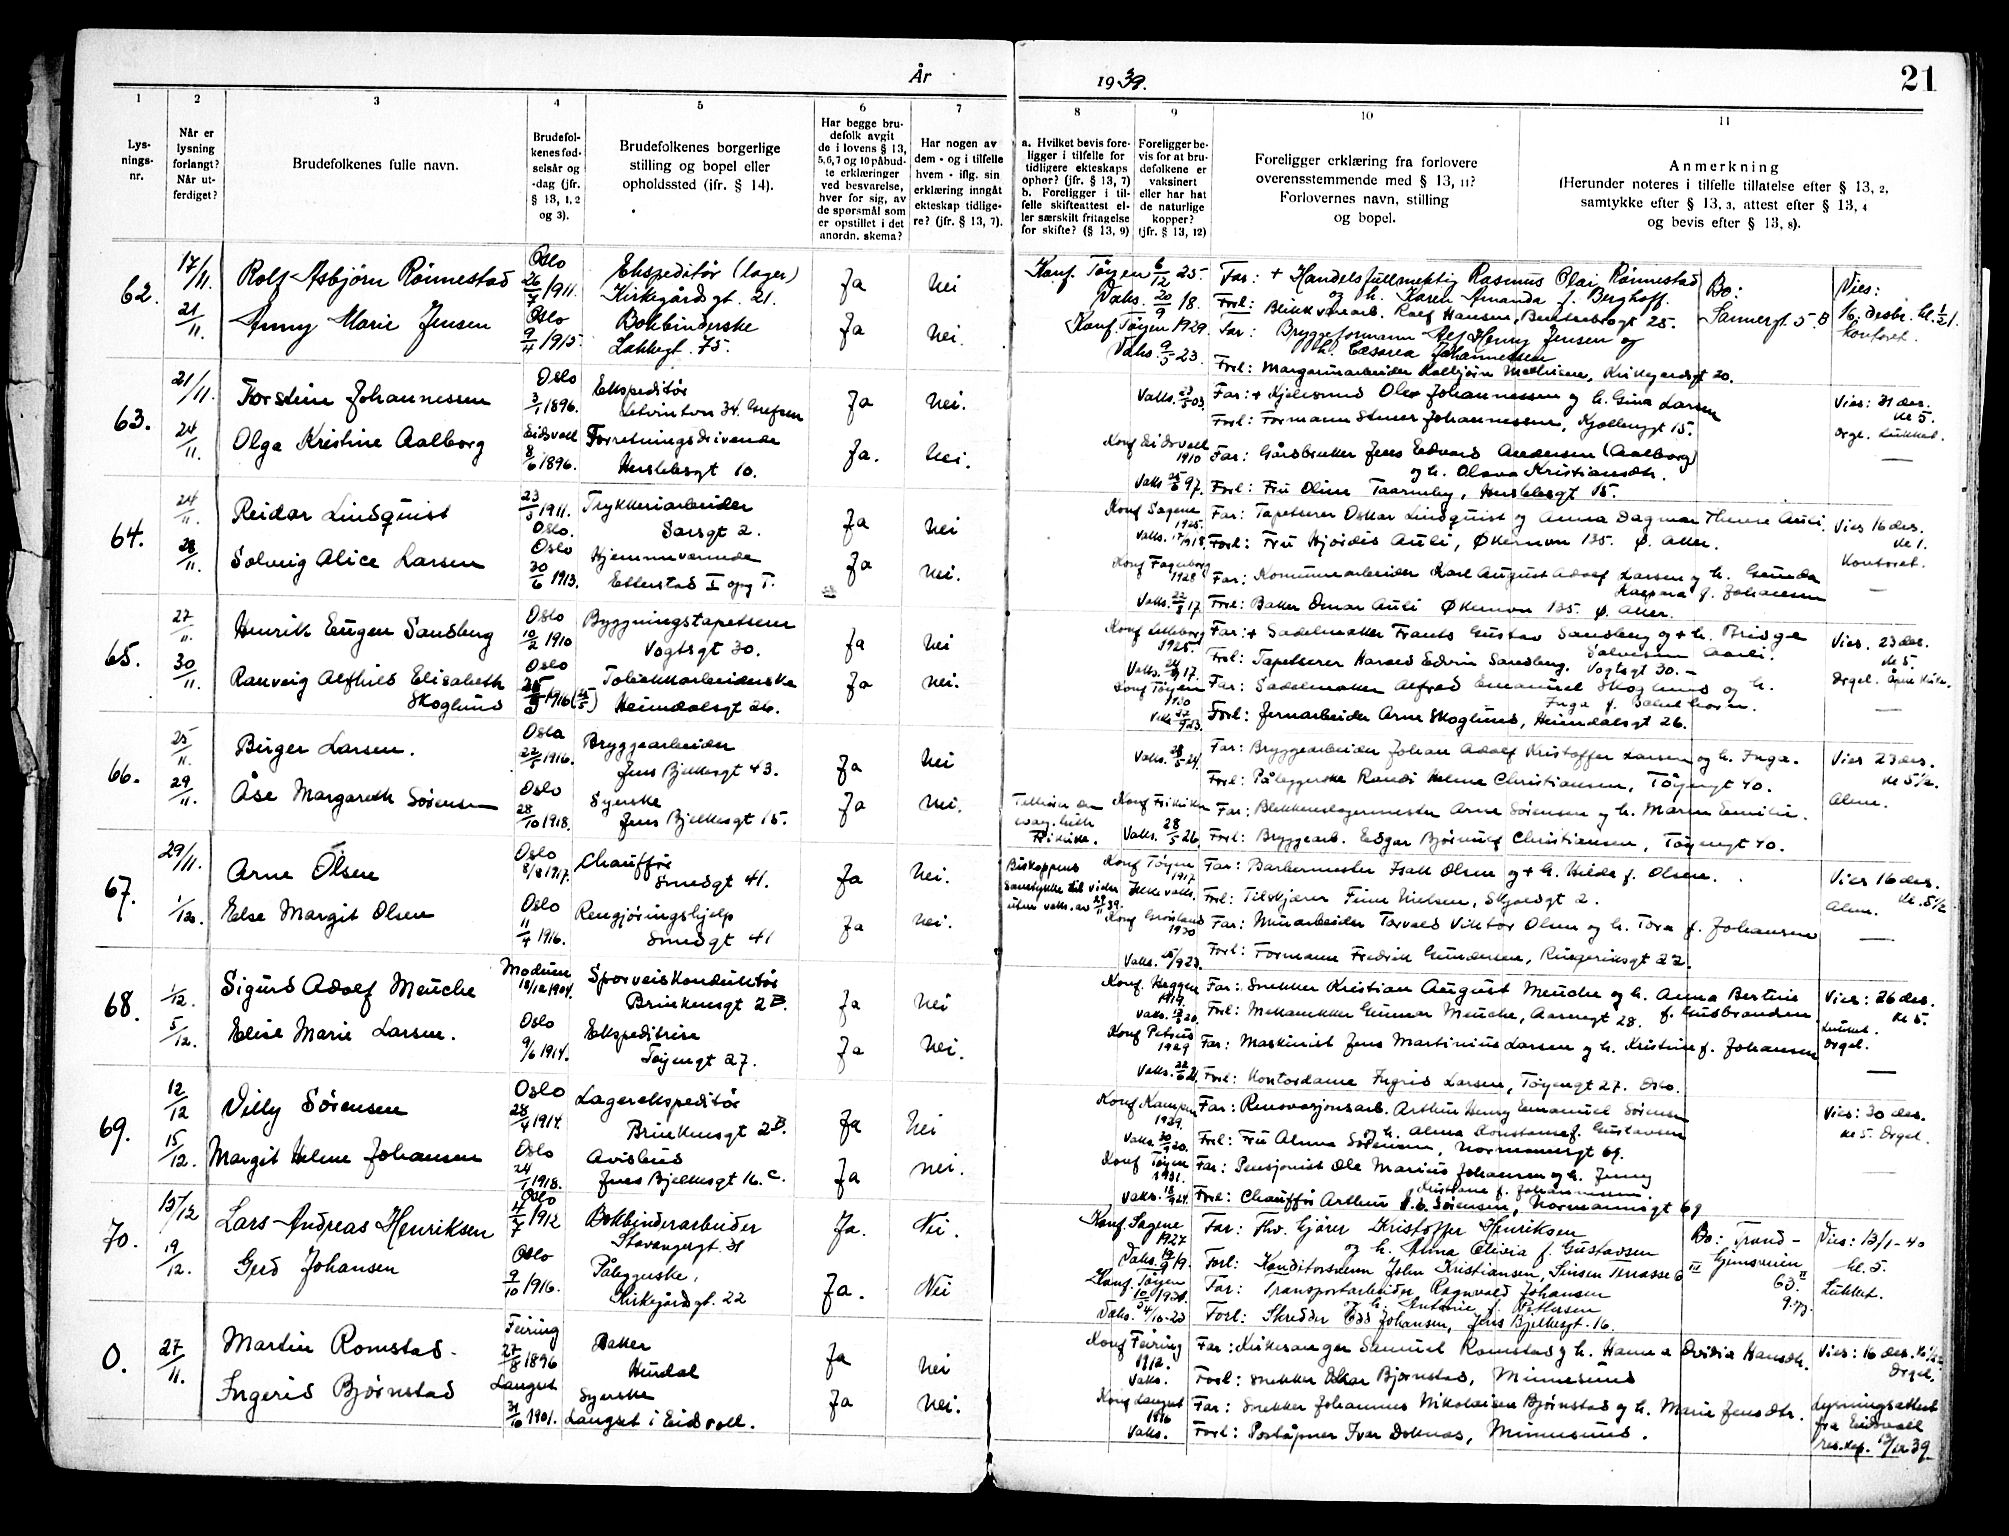 År 1939.
21
1 2 3 4 5 6 7 8 9 10 11
Lysningsnr.
Når er lysning forlangt? Når utferdiget?
Brudefolkenes fulle navn.
Brudefolkenes fødselsår og -dag (jfr. § 13, 1, 2 og 3).
Brudefolkenes borgerlige stilling og bopel eller opholdssted (jfr. § 14).
Har begge brudefolk avgitt de i lovens § 13, 5, 6, 7 og 10 påbudte erklæringer ved besvarelse, hver for sig, av de spørsmål som er opstillet i det anordn. skema?
Har nogen av dem - og i tilfelle hvem - iflg. sin erklæring inngått ekteskap tidligere? (jfr. § 13, 7).
a. Hvilket bevis foreligger i tilfelle for tidligere ekteskaps ophør? (jfr. § 13, 7) b. Foreligger i tilfelle skifteattest eller særskilt fritagelse for skifte? (§ 13, 9)
Foreligger bevis for at brudefolkene er vaksinert eller har hat de naturlige kopper? (jfr. § 13, 12)
Foreligger erklæring fra forlovere overensstemmende med § 13, 11? Forlovernes navn, stilling og bopel.
Anmerkning (Herunder noteres i tilfelle tillatelse efter § 13, 2, samtykke efter § 13, 3, attest efter § 13, 4 og bevis efter § 13, 8).
62. 17/11. Rolf Asbjørn Rönnestad Oslo 26/7 1911. Ekspeditør (lager) Kirkegårdsgt. 21. Ja Nei
Konf. Tøyen 6/12 25. Vaks. 20/9 18.
Far: + Handelsfullmektig Rasmus Olai Rönnestad og h. Karen Amanda f. Berghoff.
Forl: Blikkvarearb. Rolf Hansen, 25.
Bo: Sannergt. 5 B
Vies: 16. desbr. kl. 1/2 1. kontoret.
21/11. Anny Marie Jensen Oslo 9/4 1915. Bokbinderske Lakkegt. 75. Ja Nei.
Konf. Tøyen 1929. Vaks. 9/5 23.
Far: Bryggeformann Alf Henry Jensen og h. Johannessen
Forl: Margarinarbeider Kolbjörn Mathisen, Kirkegårdsgt 20.
63. 21/11. Torstein Johannessen Oslo 3/1 1896. Ekspeditør 34. Grefsen Ja Nei.
Vaks. 03.
Far: + Kjelesmed Olav Johannessen og h. Gina Larsen
Forl: Formann Stener Johannessen, Kjølberggt 15.
Vies: 31 des. kl 5. Orgel. Lukket.
24/11. Olga Kristine Aalborg Eidsvoll 8/6 1896. Forretningsdrivende Herslebsgt 10. Ja. Nei.
Konf Eidsvoll 1910 Vaks 97.
Far: Gårdbruker Jens Edvard Andersen (Aalborg) og h. Olava Kristiansdtr.
Forl: Fru Oline Taarneby, Herslebsgt 15.
64. 24/11. Reidar Lindquist 23/3 1911. Oslo. Trykkeriarbeider Sarsgt 2. Ja Nei
Konf Sagene 1925. Vaks. 17/9 18.
Far: Tapetserer Oskar Lindquist og Anna Dagmar Therese Auli.
Forl: Fru Hjørdis Auli, Økernvn 135. Ø. Aker.
Vies 16 des. kl 1. Kontoret.
28/11. Solveig Alice Larsen Oslo 30/6 1913. Hjemmeværende Etterstad I opg I. Ja Nei.
Konf Fagerborg 1928 Vaks. 22/8 17.
Far: Kommunearbeider Karl August Adolf Larsen og h. Gunda Kaspara f. Johansen
Forl: Baker Einar Auli Økernvn 135. Ø. Aker.
65. 27/11. Henrik Eugen Sandberg Oslo 10/2 1910 Bygningstapetserer Vogtsgt 30. Ja Nei
Konf Lilleborg 1925. Vaks. 17.
Far: + Sadelmaker Frants Gustav Sandberg og + h. Bridge
Forl: Tapetserer Harald Edvin Sandberg. Vogtsgt 30. —
Vies. 23 des. kl 5. Orgel.
30/11. Ranveig Alfhild Elisabeth Skoglund Oslo 1916 (25/5) Tobakkarbeiderske Heimdalsgt 26. Ja Nei.
Konf Tøyen 1930 Vaks 23.
Far: Sadelmaker Alfred Emanuel Skoglund og h. Inga f.
Forl: Jernarbeider Arne Skoglund, Heimdalsgt 26.
66. 25/11. Birger Larsen. Oslo 22/5 1916. Bryggearbeider Jens Bjelkesgt 43. Ja Nei
Vaks. 28/5 24.
Far: Bryggearbeider Johan Adolf Kristoffer Larsen og h. Inga.
Forl: Påleggerske Randi Helene Christiansen, Tøyengt 40.
Vies 23 des. kl 5 1/2. Alm.
29/11. Åse Margareth Sørensen Oslo 28/10 1918. Syerske Jens Bjelkesgt 15. Ja Nei.
Vaks. 28/5 26.
Far: Blikkenslagermester Arne Sørensen og h. Maren Emilie.
Forl: Bryggearb. Edgar Bjørnulf Christiansen, Tøyengt 40.
67. 29/11. Arne Olsen Oslo 8/8 1917. Chauffør Smedgt 41. Ja Nei.
Biskoppens samtykke til vielse uten vaks. av 29/11 39.
Konf Tøyen 1917 Ikke vaks.
Far: Barbermester Isak Olsen og + h. Hilda f. Olsen.
Forl: Tilskjærer Finn Nielsen, Skjoldgt 2.
Vies 16 des. kl. 5 1/2 Alm.
1/12. Else Margit Olsen Oslo 11/4 1916. Rengjøringshjelp Smedgt 41 Ja Nei.
Konf Grønland 1930 Vaks. 15/9 23.
Far: Murarbeider Torvald Viktor Olsen og h. Tora f. Johansen
Forl: Formann Fredrik Gundersen, Ringeriksgt 22.
68. 1/12. Sigurd Adolf Meuche Modum 18/12 1904. Sporveiskonduktør Brinkensgt 2B. Ja Nei
Konf. Heggen 1919. Vaks. 20.
Far: Snekker Kristian August Meuche og h. Anna Bertine f. Gusbrandsen
Forl: Mekaniker Gunnar Meuche, Aasengt 28.
Vies: 26 des. kl 5. Lukket. Orgel.
5/12. Elise Marie Larsen. Oslo 9/6 1914. Ekspeditrise Tøyengt 27. Ja Nei.
Konf Petrus 1929 Vaks. 22/6 21.
Far: Maskinist Jens Martinius Larsen og h. Kristine f. Johansen
Forl: Kontordame Ingrid Larsen, Tøyengt 27. Oslo.
69. 12/12 Villy Sørensen Oslo 28/4 1914. Lagerekspeditør Brinkensgt 2B. Ja Nei
Konf Kampen 1929. Vaks. 20.
Far: Renovasjonsarb. Arthur Henry Emanuel Sørensen og h. Alma Konstanse f. Gustavsen
Forl: Fru Alma Sørensen, Normannsgt 69.
Vies: 30 des. kl 5. Orgel.
15/12. Margit Helene Johansen Oslo 24/1 1918. Avisbud Jens Bjelkesgt 16. C. Ja Nei.
Konf Tøyen 1931. Vaks. 18/9 24.
Far: Pensjonist Ole Marius Johansen og h. Jenny Kristiane f. Johannessen.
Forl: Chauffør Arthur Sørensen, Normannsgt 69
70. 13/12 Lars Andreas Henriksen Oslo 4/7 1912 Bokbinderarbeider Stavangergt. 31 Ja. Nei.
Konf. Sagene 1927 Vaks. 19.
Far: Fhv. Gjører Kristoffer Henriksen og h. Alma Olivia f. Gustavsen
Forl: Konditorsvenn John Kristiansen, Sinsen Terrasse 6
Bo: Trondhjemsveien 63.
Vies: 13/1 - 40 kl. 5. Lukket.
19/12. Gerd Johansen Oslo 9/10 1916. Påleggerske, Kirkegårdsgt. 22 Ja. Nei
Konf. Tøyen Vaks. 4/10 - 23
Far: Transportarbeider Ragnvald Johansen og h. Antonie f. Pettersen
Forl: Skredder Odd Johansen, Jens Bjelkesgt. 16.
0. 27/11. Martin Romstad. Feiring 27/8 1896 Baker Hurdal Ja Nei
Konf Feiring 1912. Vaks.
Far: Kirkesanger Samuel Romstad og h. Hanna Ovidia Hansdtr.
Forl: Snekker Einar Bjørnstad, Minnesund
Vies: 16 des. Orgel.
Ingerid Bjørnstad Langset 31/10 1901. Syerske Langset i Eidsvoll. Ja Nei.
Konf Langset 1916 Vaks.
Far: Snekker Johannes Nikolaisen Bjørnstad og h. Marie Jensdtr.
Forl: Poståpner Ivar Doknæs, Minnesund.
Lysningsattest fra Eidsvoll res. kap. 13/12 39.